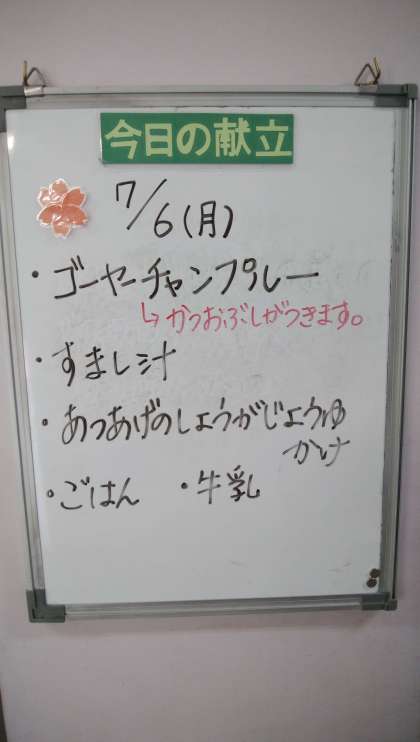 今日の献立
7/6(月)
・ゴーヤーチャンプルー
↳かつおぶしがつきます。
・すまし汁
・あつあげのしょうがじょうゆ
かけ
・ごはん ・牛乳